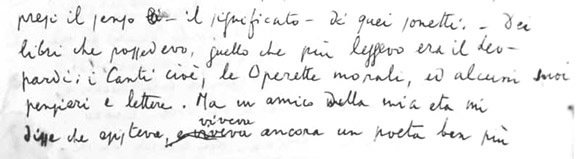 presi il senso – il significato – di quei sonetti. – Dei
libri che possedevo, quello che più leggevo era il Leo-
pardi: i Canti cioè, le Operette morali, ed alcuni suoi
pensieri e lettere. Ma un amico della mia età mi
viveva
disse che esisteva, e viveva ancora un poeta ben più